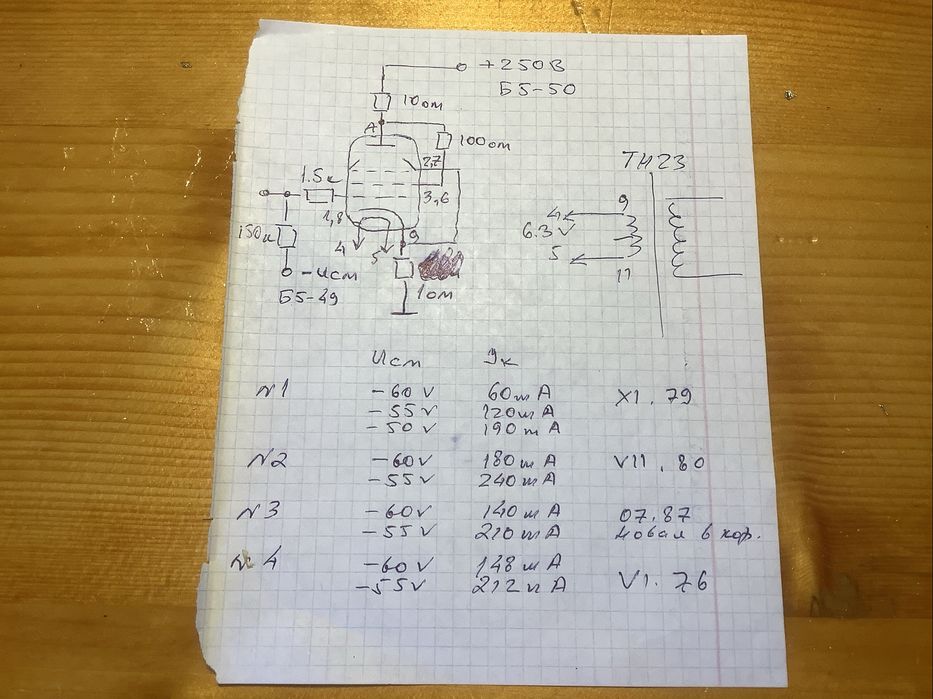 +250В
Б5-50
10ом
А
100ом
2,7
ТН23
1.5к
3,6
1,8
9
4
6.3 V
9
150к
4
5
5
-Uсм
11
Б5-49
1ом
Uсм Iк
N1 -60V 60mA XI. 79
-55V 120mA
-50V 190mA
N2 -60V 180mA VII. 80
-55V 240mA
N3 -60V 140mA 07.87
-55V 210mA новая в кор.
N4 -60V 148mA
-55V 212mA VI. 76